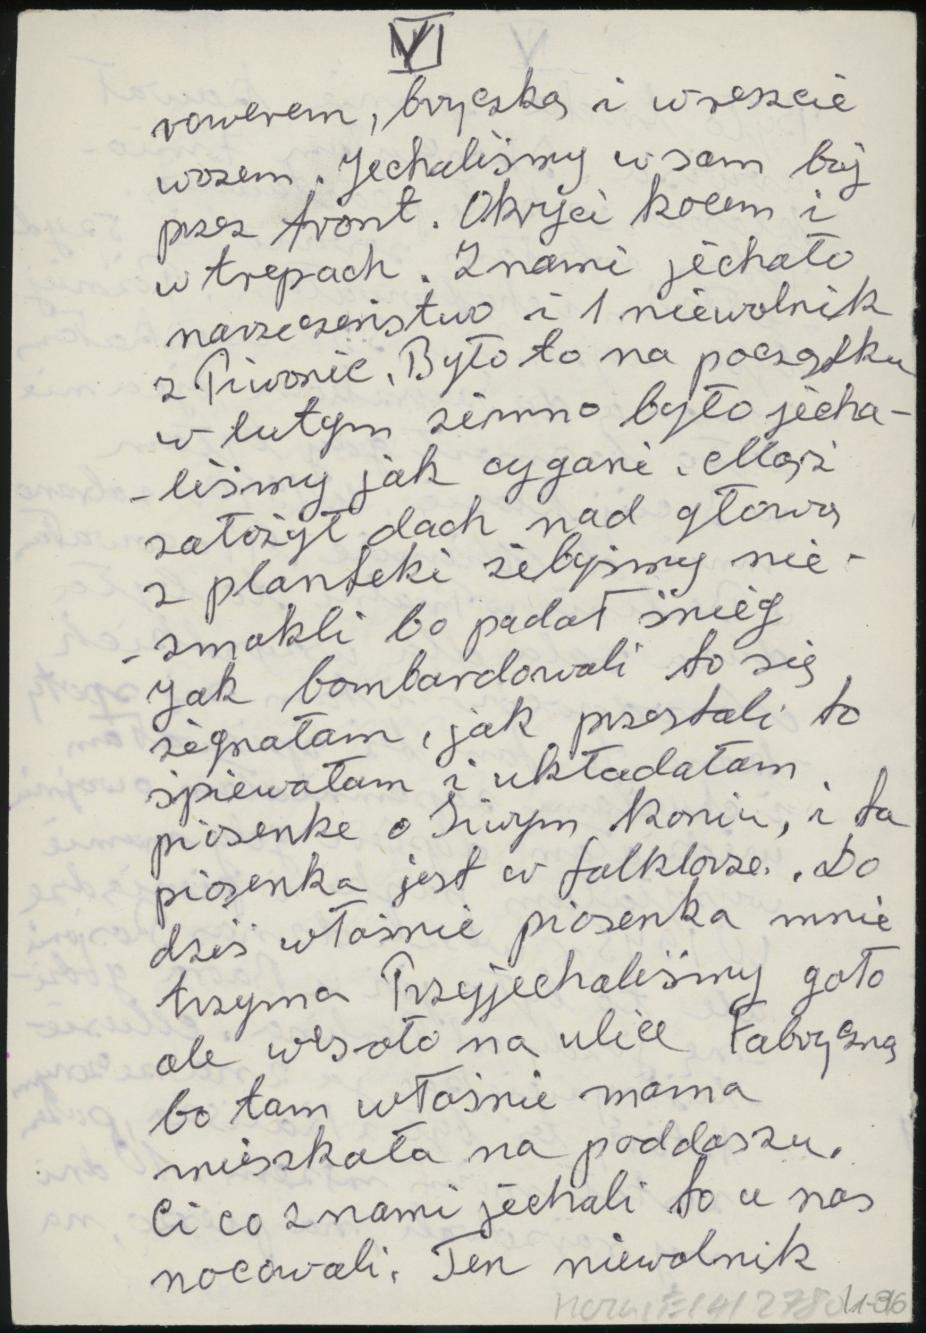 VI
rowerem, bryczką i wreszcie
wozem. Jechaliśmy w sam bój
przez front. Okryci kocem i
w trepach. Z nami jechało
narzeczeństwo i 1 niewolnik
z Piwonic. Było to na początku
w lutym zimno było jecha-
-liśmy jak cygani. Mąż
założył dach nad głową
z planteki żebyśmy nie-
-zmokli bo padał śnieg
Jak bombardowali to się
żegnałam, jak przestali to
śpiewałam i układałam
piosenke o Siwym koniu, i ta
piosenka jest w folklorze. Do
dziś właśnie piosenka mnie
trzyma Przyjechaliśmy goło
ale wesoło na ulice Fabryczną
bo tam właśnie mama
mieszkała na poddaszu.
Ci co z nami jechali to u nas
nocowali. Ten niewolnik